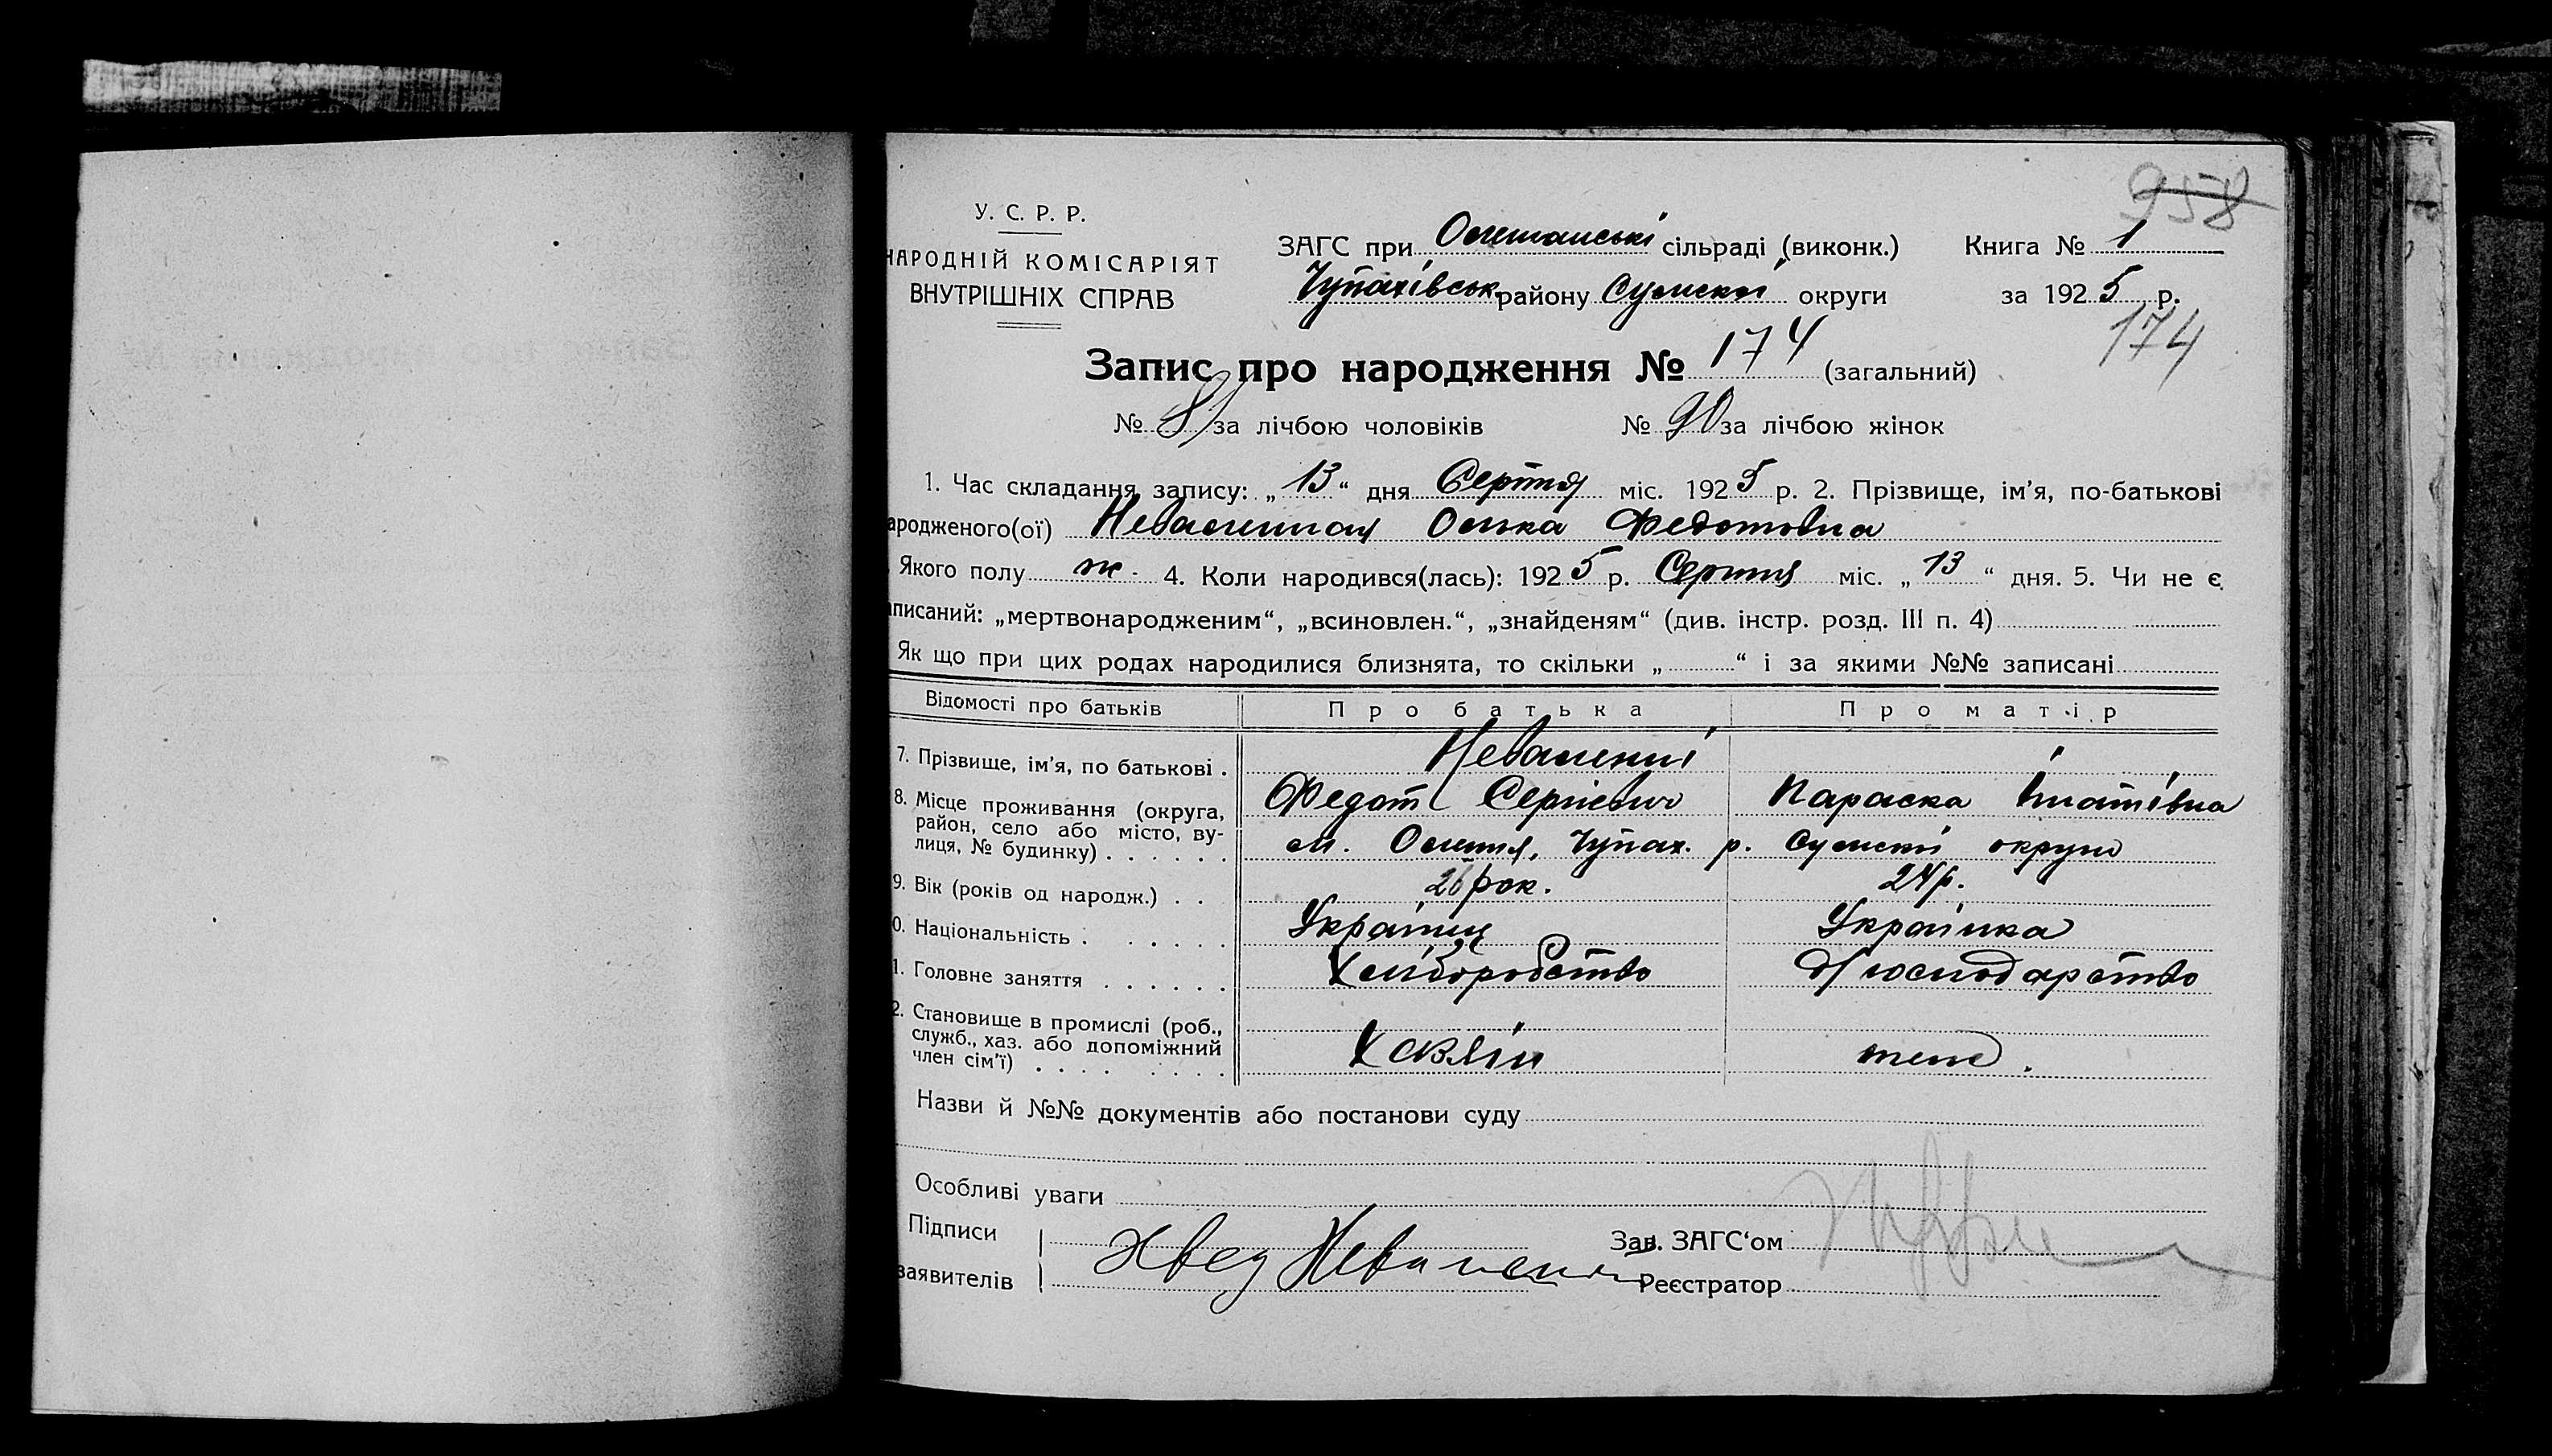 958
У. С. Р. Р.
НАРОДНІЙ КОМІСАРІЯТ
ВНУТРІШНІХ СПРАВ
ЗАГС при сільраді (виконк.) Книга № 1
Чупахівськ. району Сумської округи за 1925 р.
174
Запис про народження № 174 (загальний)
№ за лічбою чоловіків № 90 за лічбою жінок
1. Час складання запису: „13“ дня Серпня міс. 1925 р. 2. Прізвище, ім’я, по-батькові
ародженого(ої) Олька Федотовна
Якого полу ж. 4. Коли народився(лась): 1925 р. Серпня міс. „13“ дня. 5. Чи не є
аписаний: „мертвонародженим“, „всиновлен.“, „знайденям“ (див. інстр. розд. III п. 4)
Як що при цих родах народилися близнята, то скільки „ “ і за якими №№ записані
Відомості про батьків Про батька Про матір
7. Прізвище, ім’я, по батькові .
8. Місце проживання (округа, район, село або місто, вулиця, № будинку) . . . . . . Федот Сергієвич Параска Гнатівна
м. Чупах. р. Сумської округи
9. Вік (років од народж.) . . 26 рок. 24 р.
0. Національність . . . . . . Українець Українка
1. Головне заняття . . . . . . Хліборобство Д/господарство
2. Становище в промислі (роб.,
служб., хаз. або допоміжний
член сім’ї) . . . . . . . . Хазяїн член.
Назви й №№ документів або постанови суду
Особливі уваги
Підписи
заявителів Хвед
Зав. ЗАГС‘ом
Реєстратор